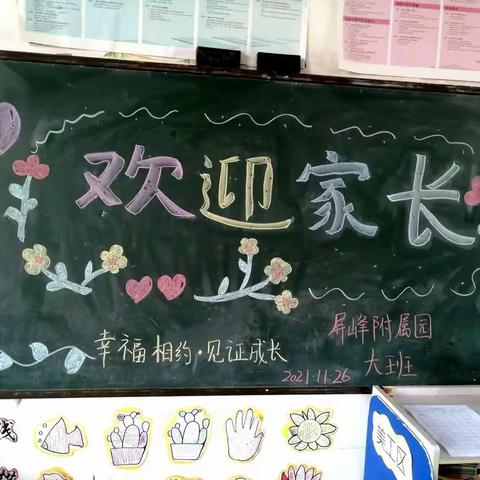 欢迎家长
幸福相约·见证成长
屏峰附属园
大班
2021.11.26
美工区